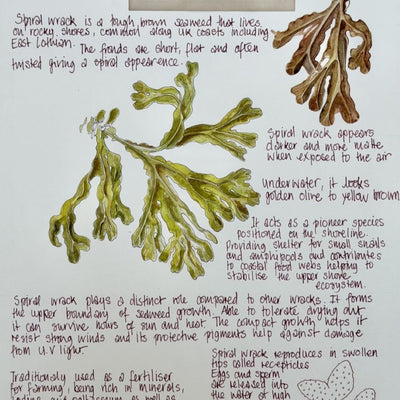 Spiral wrack is a tough, brown seaweed that lives
on rocky shores, common along UK coasts including
East Lothian. The fronds are short, flat and often
twisted giving a spiral appearance.
Spiral wrack appears
darker and more matte
when exposed to the air
Underwater, it looks
golden olive to yellow brown
It acts as a pioneer species
positioned on the shoreline.
Providing shelter for small snails
and amphipods and contributes
to coastal food webs helping to
stabilise the upper shore
ecosystem.
Spiral wrack plays a distinct role compared to other wracks. It forms
the upper boundary of seaweed growth. Able to tolerate drying out
it can survive hours of sun and heat. The compact growth helps it
resist strong winds and its protective pigments help against damage
from U.V light.
Traditionally used as a fertiliser
for farming, being rich in minerals,
as well as
Spiral wrack reproduces in swollen
tips called receptacles
Eggs and sperm
are released into
the water at high